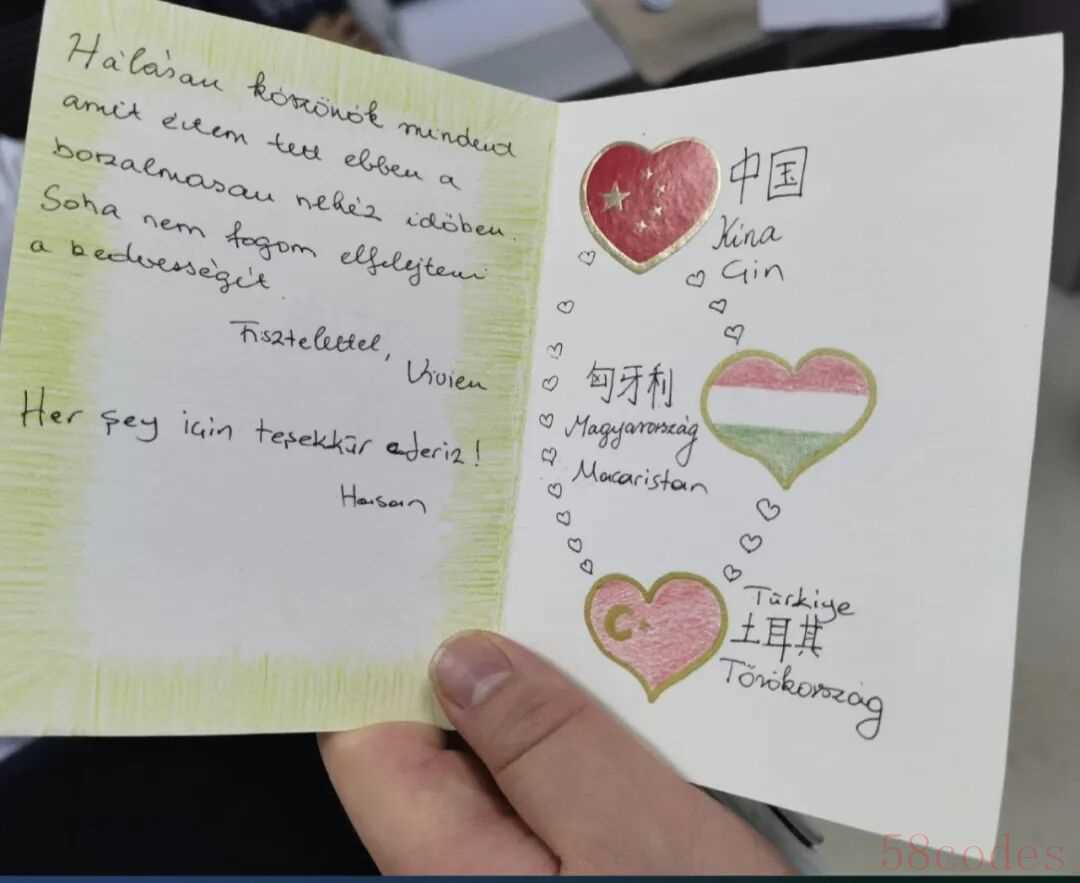 Hálásan köszönök mindent
amit értem tett ebben a
borzalmasan nehéz időben.
Soha nem fogom elfelejteni
a kedvességét
Tisztelettel,
Vivien
Her şey için teşekkür ederiz!
Hasan
中国
Kína
Çin
匈牙利
Magyarország
Macaristan
Türkiye
土耳其
Törökország
58codes